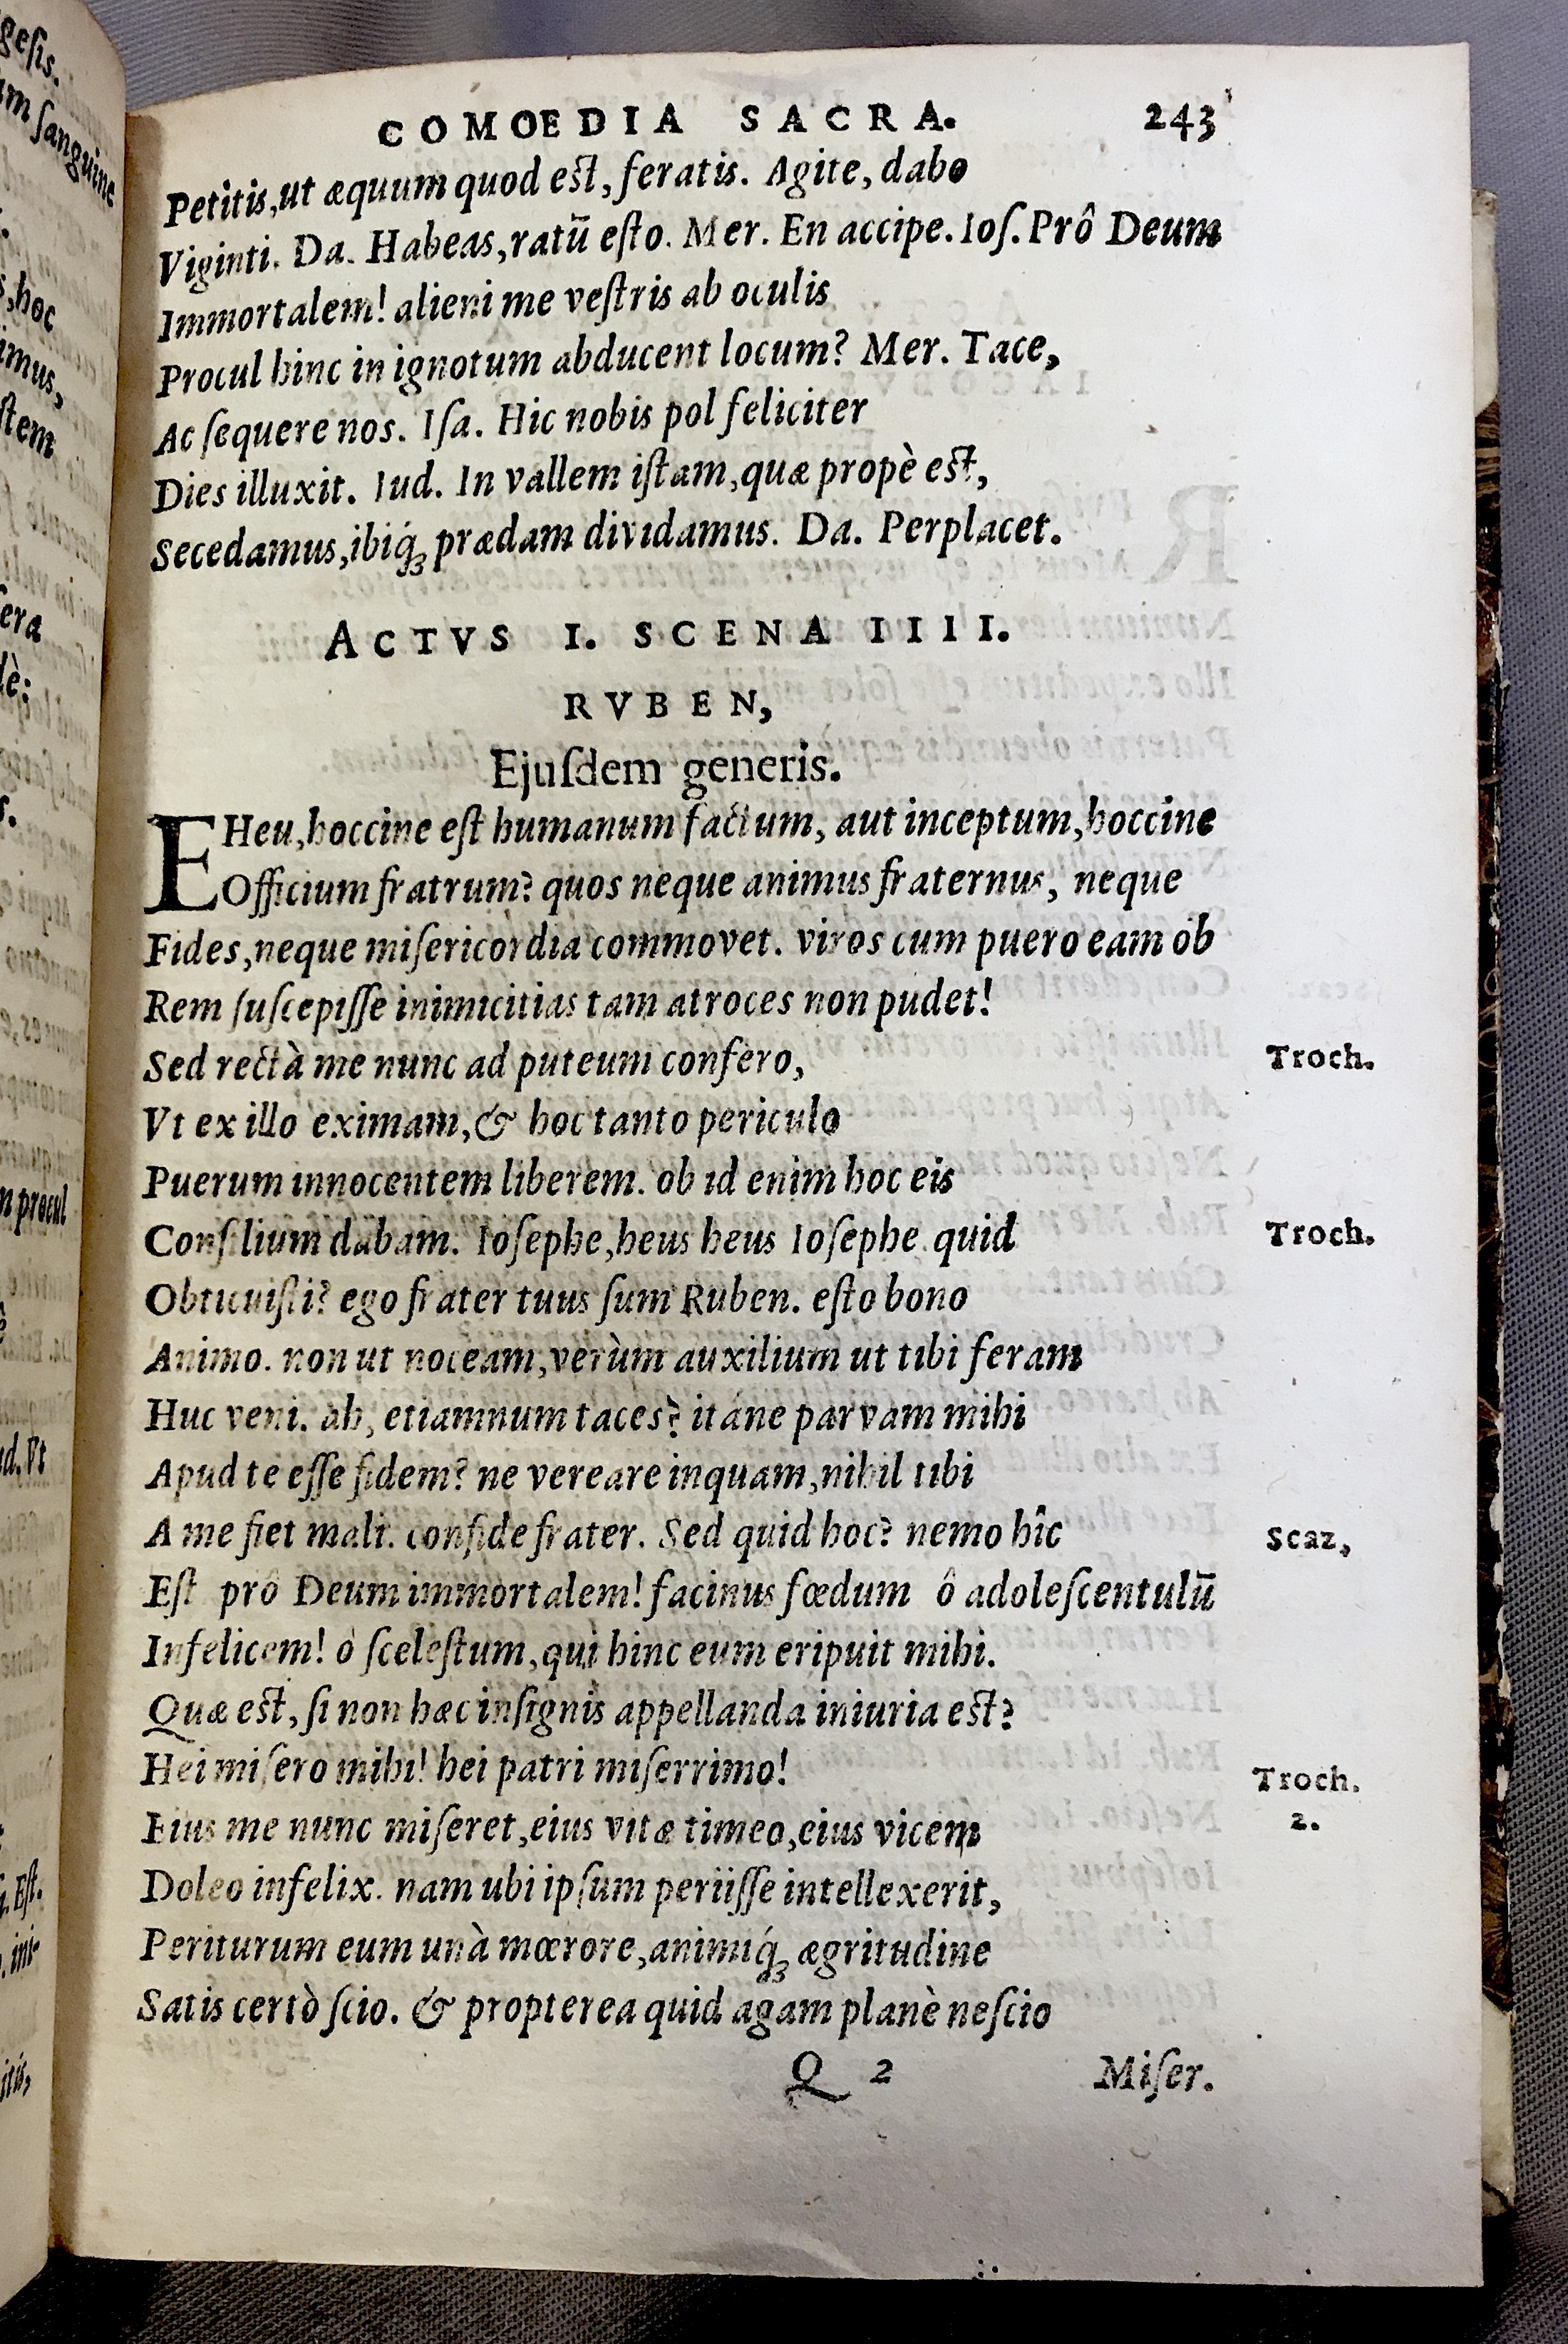 COMOEDIA SACRA. 243
Petitis,ut æquum quod est, feratis. Agite, dabo
Viginti. Da. Habeas,ratū eſto. Mer. En accipe. Ioſ. Prô Deum
Immortalem! alieni me veſtris ab oculis
Procul hinc in ignotum abducent locum? Mer. Tace,
Ac ſequere nos. Iſa. Hic nobis pol feliciter
Dies illuxit. Iud. In vallem iſtam,quæ propè est,
Secedamus,ibiq́ꝫ prædam dividamus. Da. Perplacet.
ACTVS I. SCENA IIII.
RVBEN,
Ejuſdem generis.
EHeu,hoccine eſt humanum factum, aut inceptum,hoccine
Officium fratrum? quos neque animus fraternus, neque
Fides,neque miſericordia commovet. viros cum puero eam ob
Rem ſuſcepiſſe inimicitias tam atroces non pudet!
Sed rectà me nunc ad puteum confero,
Troch.
Vt ex illo eximam,& hoc tanto periculo
Puerum innocentem liberem. ob id enim hoc eis
Conſilium dabam. Ioſephe,heus heus Ioſephe quid
Troch.
Obticuiſti? ego frater tuus ſum Ruben. eſto bono
Animo. non ut noceam,verùm auxilium ut tibi feram
Huc veni. ah, etiamnum taces? itáne parvam mihi
Apud te eſſe fidem? ne vereare inquam,nihil tibi
A me fiet mali. confide frater. Sed quid hoc? nemo hîc
Scaz,
Eſt prô Deum immortalem! facinus fœdum ô adoleſcentulū
Infelicem! ò ſceleſtum,qui hinc eum eripuit mihi.
Quæ est, ſi non hæc inſignis appellanda iniuria est?
Hei miſero mihi! hei patri miſerrimo!
Troch.
2.
Eius me nunc miſeret,eius vitæ timeo,eius vicem
Doleo infelix. nam ubi ipſum periiſſe intellexerit,
Periturum eum unà mœrore,animiq́ꝫ ægritudine
Satis certò ſcio. & propterea quid agam planè neſcio
Q 2 Miſer.